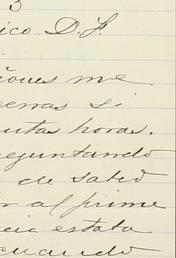 3
ico D. F.
iones me
penas si
utas horas.
eguntando
de saber
r al prime
cia estaba
cuando